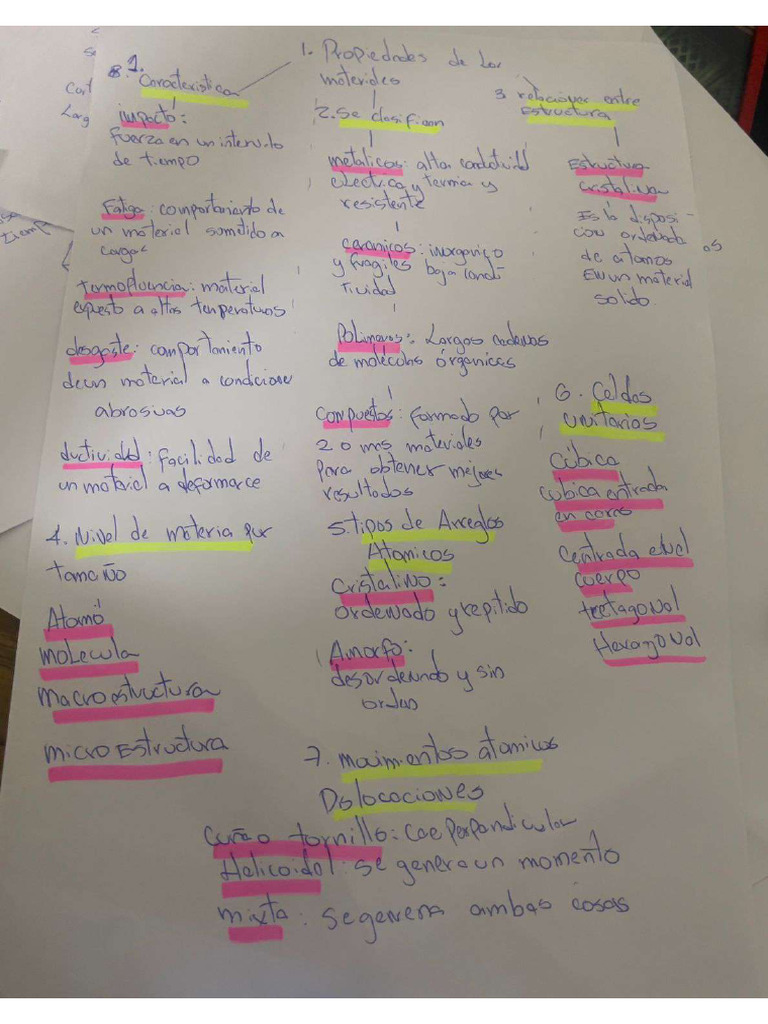 1. Propiedades de los
materiales
1.
Caracteristica
impacto:
fuerza en un intervalo
de tiempo
Fatiga: comportamiento de
un material sometido a
cargas
termofluencia: material
expuesto a altas temperaturas
desgaste: comportamiento
de un material a condiciones
abrosivas
ductividad: facilidad de
un material a deformarce
2. Se clasifican
metalicos: altas conductividad
electrica y termia y
resistente
ceramicos: inorganico
y fragiles baja conduc-
tividad
Polimeros: Largos cadenas
de moléculas órganicas
compuestos: formado por
2 o mas materiales
para obtener mejores
resultados
3 relaciones entre
Estructura
Estructura
cristalina
Es la disposi-
cion ordenada
de atomos
EN un material
solido.
4. Nivel de materia por
tamaño
Atomó
molecula
macroestructura
micro Estructura
5. tipos de Arreglos
Atomicos
Cristalino:
ordenado y repitido
Amorfo:
desordenando y sin
orden
6. Celdas
unitarias
Cúbica
cubica centrada
en caras
Centrada en el
cuerpo
tretagonal
Hexagonal
7. movimientos atomicos
Dislocaciones
Cuña o tornillo: cae perpendicular
Helicoidal: se genera un momento
mixta: se genera ambas cosas